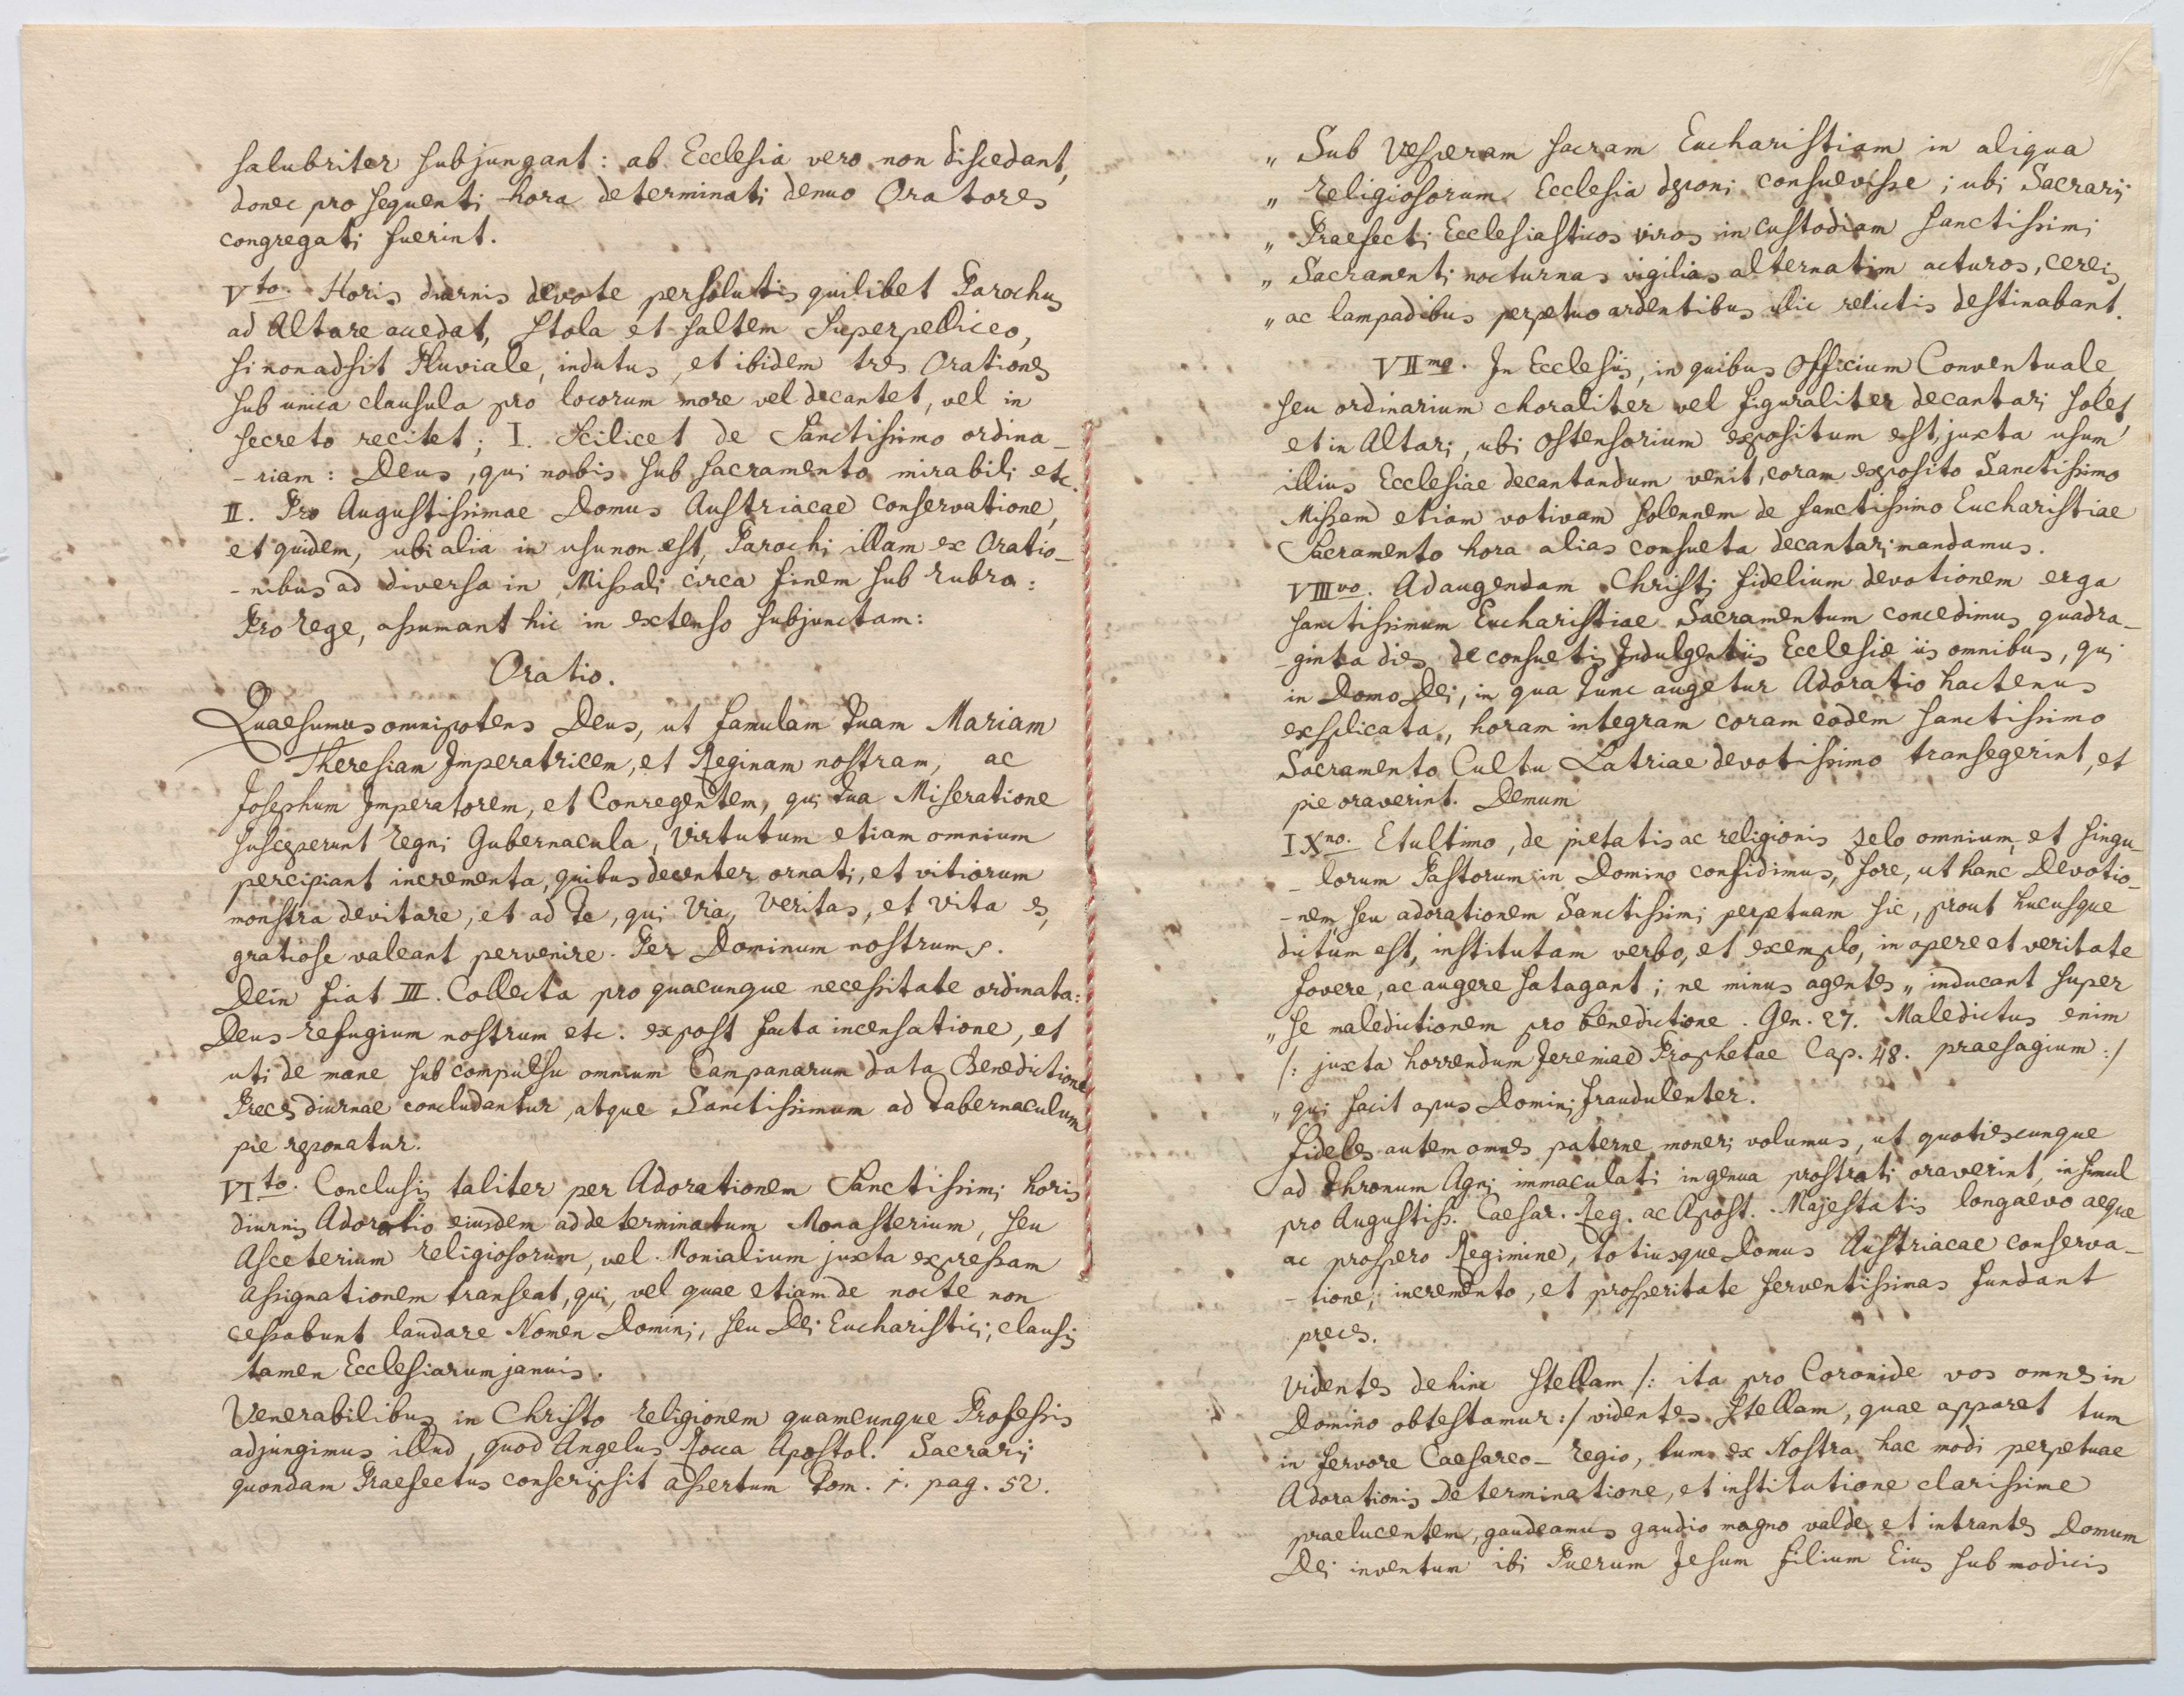 salubriter subjungant: ab Ecclesia vero non discedant,
donec pro sequenti hora determinati denuo Oratores
congregati fuerint.
Vto. Horis diurnis devote persolutis quilibet Parochus
ad Altare accedat, Stola et saltem Superpelliceo,
si non adsit Pluviale, indutus, et ibidem tres Orationes
sub unica clausula pro locorum more vel decantet, vel in
secreto recitet; I. Scilicet de Sanctissimo ordina-
-riam: Deus, qui nobis sub sacramento mirabili etc.
II. Pro Augustissimae Domus Austriacae conservatione,
et quidem, ubi alia in usu non est, Parochi illam ex Oratio-
-nibus ad diversa in Missali circa finem sub rubra:
Pro rege, assumant hic in extenso subjunctam:
Oratio.
Quaesumus omnipotens Deus, ut famulam tuam Mariam
Theresiam Imperatricem, et Reginam nostram, ac
Josephum Imperatorem, et Conregentem, qui tua Miseratione
susceperunt regni Gubernacula, virtutum etiam omnium
percipiant incrementa, quibus decenter ornati, et vitiorum
monstra devitare, et ad te, qui Via, Veritas, et Vita es,
gratiose valeant pervenire. Per Dominum nostrum s.
Dein fiat III. Collecta pro quacunque necessitate ordinata:
Deus refugium nostrum etc. expost facta incensatione, et
uti de mane sub compulsu omnium Campanarum data Benedictione
Preces diurnae concludantur, atque Sanctissimum ad Tabernaculum
pie reponatur.
VIto. Conclusis taliter per Adorationem Sanctissimi horis
diurnis Adoratio eiusdem ad determinatum Monasterium, seu
Asceterium religiosorum, vel Monialium juxta expressam
assignationem transeat, qui, vel quae etiam de nocte non
cessabunt laudare Nomen Domini, seu Dei Eucharistici, clausis
tamen Ecclesiarum januis.
Venerabilibus in Christo religionem quamcunque Professis
adjungimus illud, quod Angelus Rocca Apostol. Sacrarii
quondam Praefectus conscripsit assertum Tom. i. pag. 52.
„ Sub Vesperam sacram Eucharistiam in aliqua
„ religiosorum Ecclesia deponi consuevisse; ubi Sacrarii
„ Praefecti Ecclesiasticos viros in custodiam sanctissimi
„ Sacramenti nocturnas vigilias alternatim acturos, cereis
„ ac lampadibus perpetuo ardentibus illic relictis destinabant.
VIImo. In Ecclesiis, in quibus Officium Conventuale,
seu ordinarium choraliter vel figuraliter decantari solet,
et in Altari, ubi Ostensorium expositum est, juxta usum
illius Ecclesiae decantandum venit, coram exposito Sanctissimo
Missam etiam votivam solennem de sanctissimo Eucharistiae
Sacramento hora alias consueta decantari mandamus.
VIIIvo. Ad augendam Christi fidelium devotionem erga
sanctissimum Eucharistiae Sacramentum concedimus quadra-
-ginta dies de consuetis Indulgentiis Ecclesiae iis omnibus, qui
in Domo Dei, in qua tunc augetur Adoratio hactenus
explicata, horam integram coram eodem sanctissimo
Sacramento Cultu Latriae devotissimo transegerint, et
pie oraverint. Demum
IXno. Et ultimo, de pietatis ac religionis zelo omnium, et singu-
-lorum Pastorum in Domino confidimus, fore, ut hanc Devotio-
-nem, seu adorationem Sanctissimi perpetuam sic, prout hucusque
dictum est, institutam verbo, et exemplo, in opere et veritate
fovere, ac augere satagant; ne minus agentes „ inducant super
„ se maledictionem pro benedictione. Gen. 27. Maledictus enim
/: juxta horrendum Jeremiae Prophetae Cap. 48. praesagium :/
„ qui facit opus Domini fraudulenter.
Fideles autem omnes paterne moneri volumus, ut quotiescunque
ad thronum Agni immaculati in genua prostrati oraverint, insimul
pro Augustiss. Caesar. Reg. ac Apost. Majestatis longaevo aeque
ac prospero Regimine, totiusque Domus Austriacae conserva-
-tione, incremento, et prosperitate ferventissimas fundant
preces.
Videntes dehinc stellam /: ita pro Coronide vos omnes in
Domino obtestamur :/ videntes Stellam, quae apparet tum
in fervore Caesareo-regio, tum ex Nostra hac modi perpetuae
Adorationis determinatione, et institutione clarissime
praelucentem, gaudeamus gaudio magno valde, et intrantes Domum
Dei inventum ibi Puerum Jesum filium Eius sub modicis